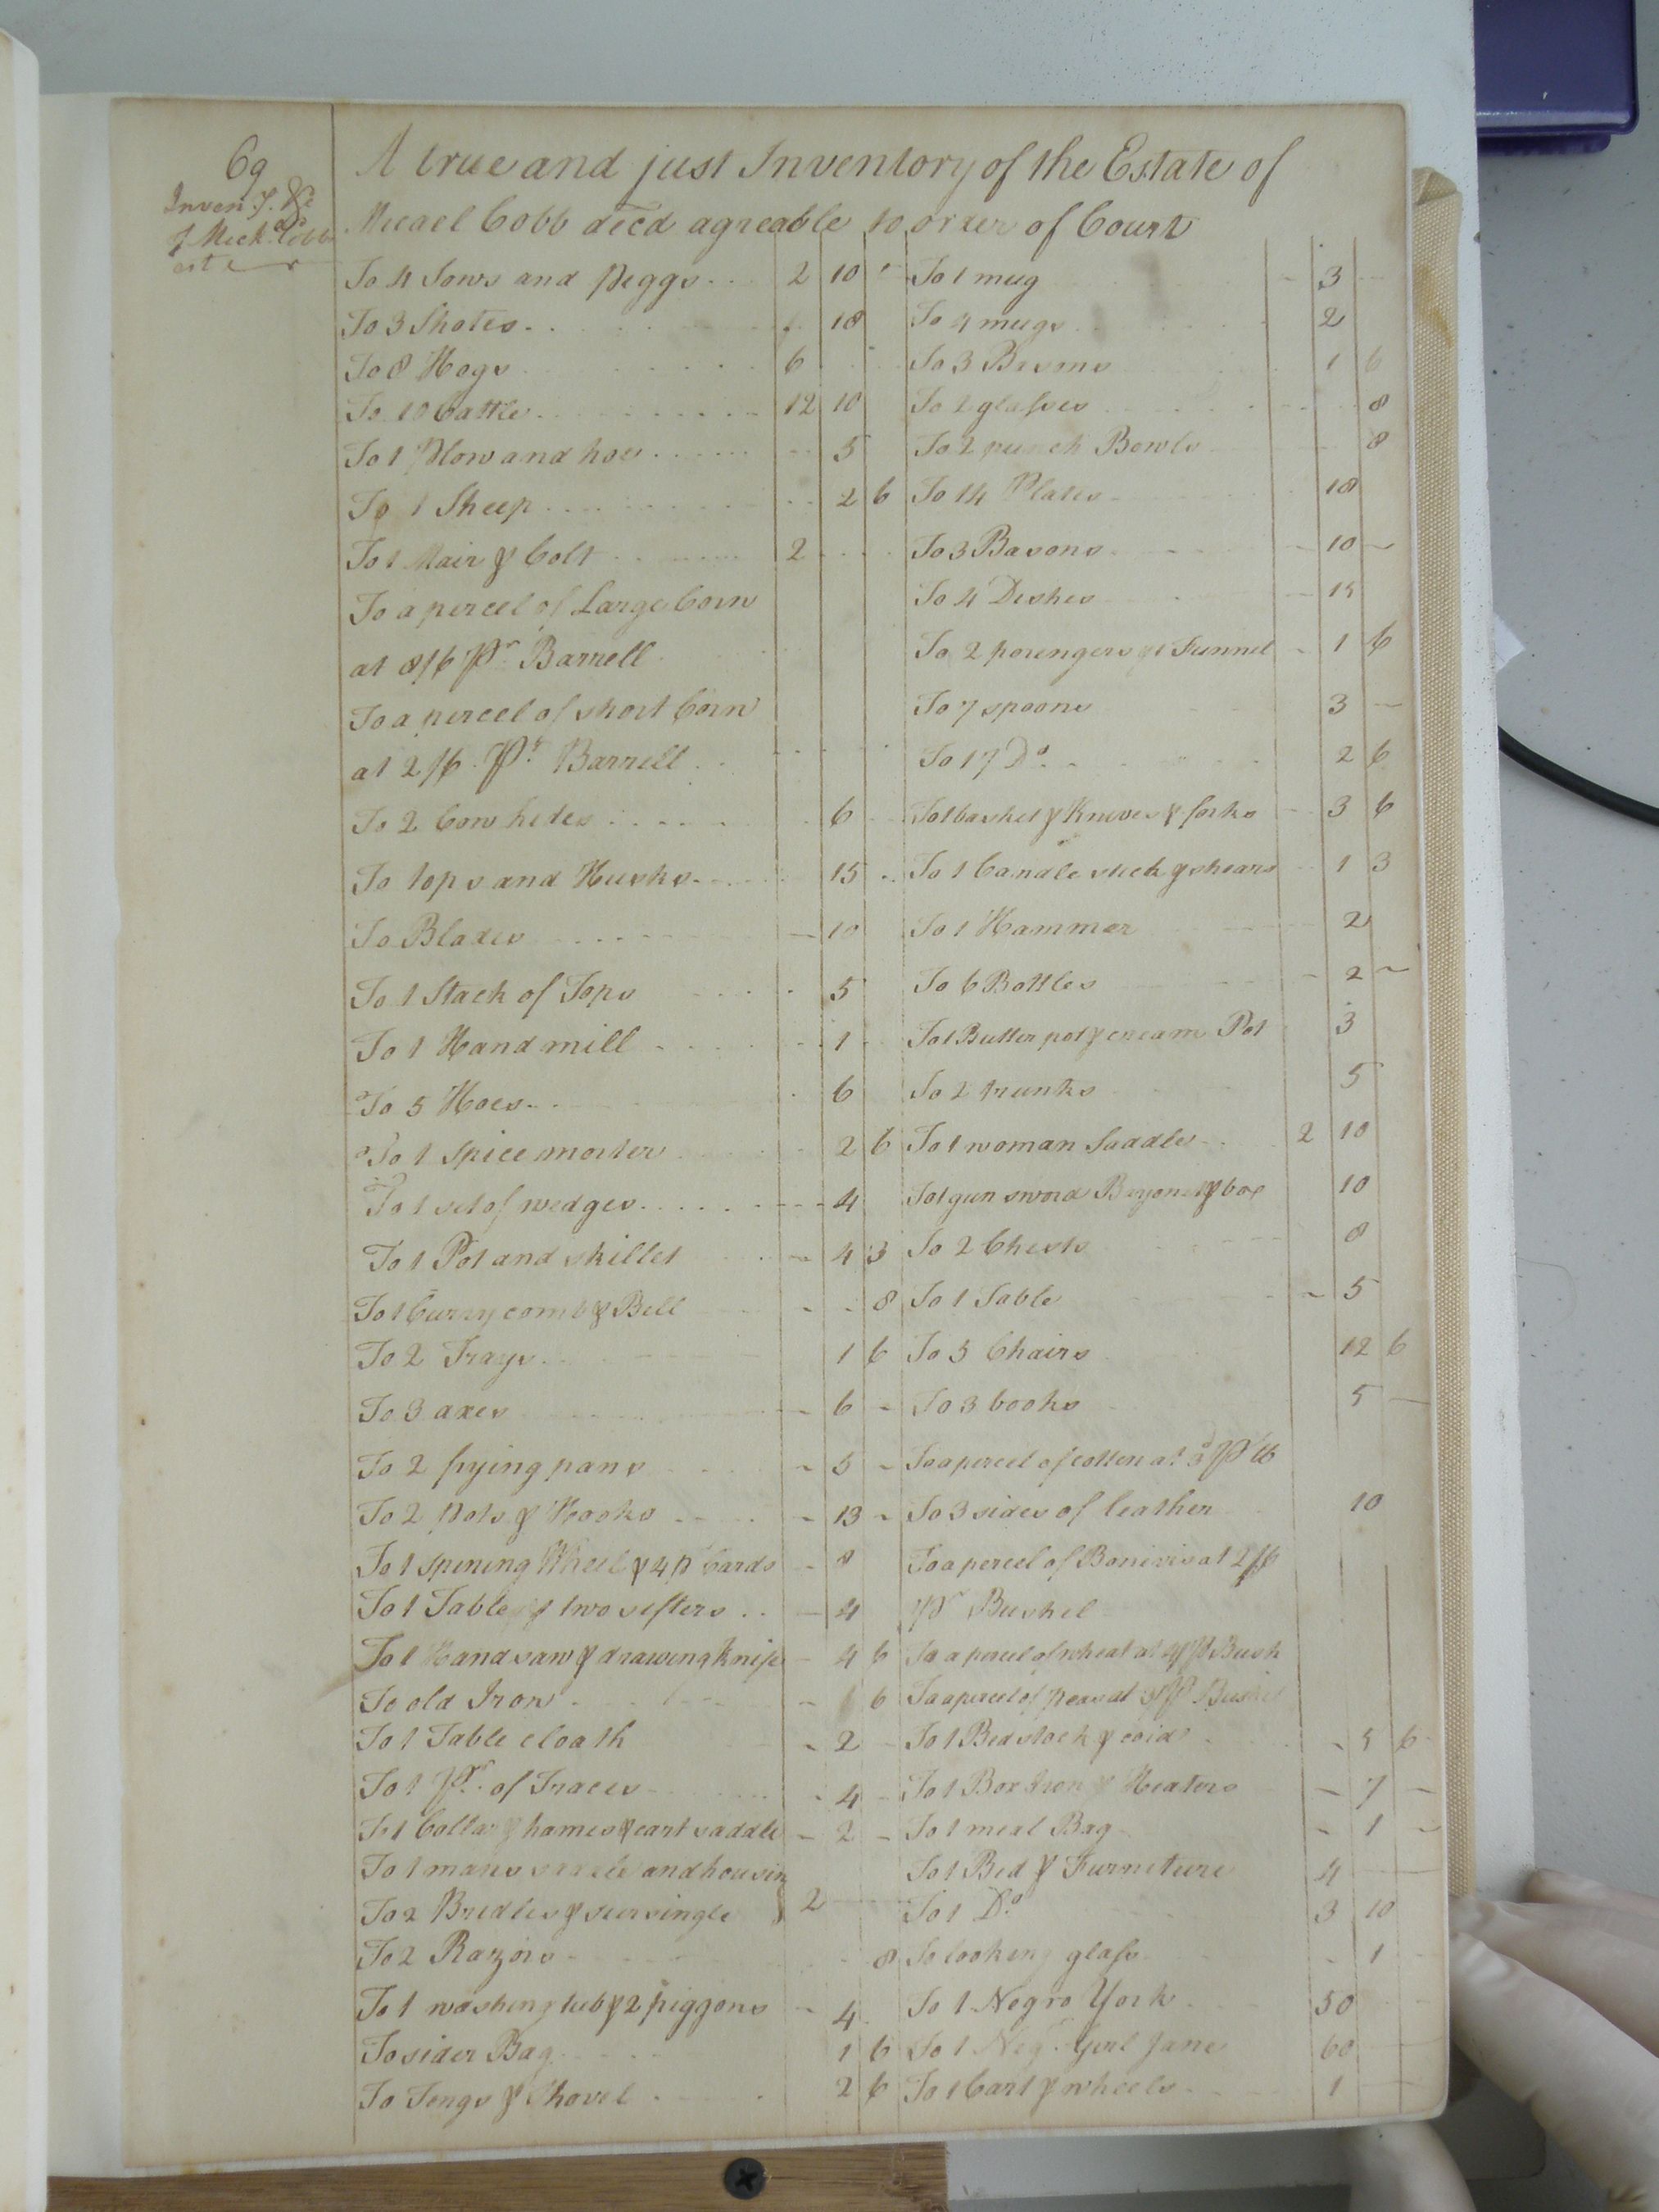 69
Inven.y. &c
of Mich.a Cobb
est
A true and just Inventory of the Estate of
Micael Cobb decd agreable to order of Court
To 4 Sows and Peggs 2 10
To 3 Shotes 18
To 8 Hogs 6
To 10 Cattle 12 10
To 1 Plow and hoe 5
To 1 Sheep 2 6
To 1 Mair & Colt 2
To a percel of Large Corn
at 8/6 Pr. Barrell
To a percel of short Corn
at 2/6 Pr. Barrell
To 2 Cow hides 6
To tops and Husks 15
To Blades 10
To 1 Stack of Tops 5
To 1 Hand mill 1
To 5 Hoes 6
To 1 Spice morter 2 6
To 1 set of wedges 4
To 1 Pot and skillet 4 3
To 1 Curry comb & Bell 8
To 2 Trays 1 6
To 3 axes 6
To 2 frying pans 5
To 2 Pots & Hooks 13
To 1 spining Wheel & 4 pr Cards 8
To 1 Table & two sifters 4
To 1 Hand saw & drawing knife 4 6
To old Iron 6
To 1 Table cloath 2
To 1 Pr. of Traces 4
To 1 Collar & hames & cart saddle 2
To 1 mans saddle and housin
To 2 Bridles & sursingle 2
To 2 Razors 8
To 1 washing tub & 2 piggons 4
To sider Bag 1 6
To Tongs & Shovel 2 6
To 1 mug 3
To 4 mugs 2
To 3 Basons 1 6
To 2 glasses 8
To 2 punch Bowls 8
To 14 Plates 18
To 3 Basons 10
To 4 Dishes 15
To 2 porengers & 1 Funnel 1 6
To 7 spoons 3
To 17 Do. 2 6
To 1 basket & Knives & forks 3 6
To 1 Candle stick & shears 1 3
To 1 Hammer 2
To 6 Bottles 2
To 1 Butter pot & cream Pot 3
To 2 trunks 5
To 1 woman Saddle 2 10
To 1 gun sword Bayonet & box 10
To 2 Chests 8
To 1 Table 5
To 5 Chairs 12 6
To 3 books 5
To a percel of cotten at 3d Pr lb
To 3 sides of leather 10
To a percel of Bonivis at 2/6
Pr Bushel
To a percel of wheat at 4/ Pr Bush
To a percel of Peas at 3/ Pr Bushel
To 1 Bed stock & coid 5 6
To 1 Box Iron & Heaters 7
To 1 meal Bag 1
To 1 Bed & Furniture 4
To 1 Do. 3 10
To looking glass 1
To 1 Negro York 50
To 1 Neg. Gerl Jane 60
To 1 Cart & wheels 1